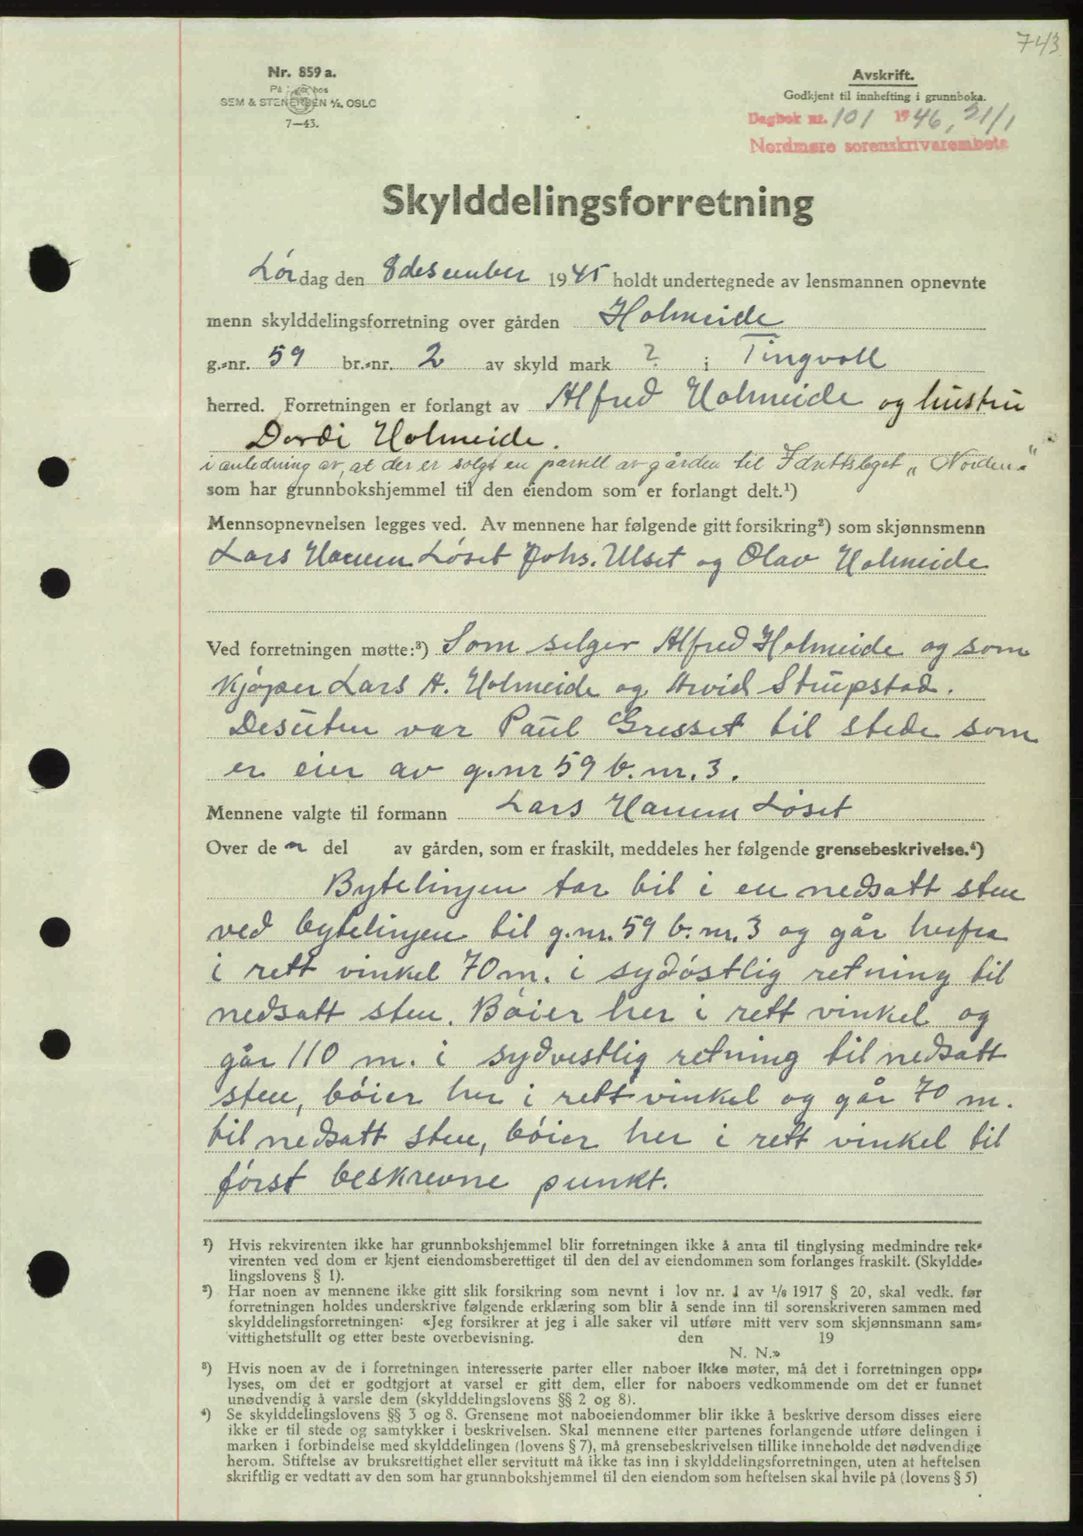 743
Nr. 859 a.
På
SEM & STENERSEN A/S, OSLO
7—43.
Avskrift.
Godkjent til innhefting i grunnboka.
Dagbok nr. 101 1946, 21/1
Nordmøre sorenskrivarembete
Skylddelingsforretning
Lørdag den 8 desember 1945 holdt undertegnede av lensmannen opnevnte
menn skylddelingsforretning over gården Holmeide
g.-nr. 59 br.-nr. 2 av skyld mark ? i Tingvoll
herred. Forretningen er forlangt av Alfred Holmeide og hustru
Dordi Holmeide.
i anledning av, at der er solgt en parsell av gården til Idrettslaget „Norden"
som har grunnbokshjemmel til den eiendom som er forlangt delt.¹)
Mennsopnevnelsen legges ved. Av mennene har følgende gitt forsikring²) som skjønnsmenn
Lars Hanem Løset Johs. Ulset og Olav Holmeide
Ved forretningen møtte:³) Som selger Alfred Holmeide og som
kjøper Lars A. Holmeide og Arvid Strupstad.
Desuten var Paul Gresset til stede som
er eier av g.nr 59 b.nr. 3.
Mennene valgte til formann Lars Hanem Løset
Over den del av gården, som er fraskilt, meddeles her følgende grensebeskrivelse.⁴)
Bytelinjen tar til i en nedsatt sten
ved bytelinjen til g.nr. 59 b.nr. 3 og går herfra
i rett vinkel 70 m. i sydøstlig retning til
nedsatt sten. Bøier her i rett vinkel og
går 110 m. i sydvestlig retning til nedsatt
sten, bøier her i rett vinkel og går 70 m.
til nedsatt sten, bøier her i rett vinkel til
først beskrevne punkt.
¹) Hvis rekvirenten ikke har grunnbokshjemmel blir forretningen ikke å anta til tinglysing medmindre rek-
virenten ved dom er kjent eiendomsberettiget til den del av eiendommen som forlanges fraskilt. (Skyldde-
lingslovens § 1).
²) Har noen av mennene ikke gitt slik forsikring som nevnt i lov nr. 1 av 1/6 1917 § 20, skal vedk. før
forretningen holdes underskrive følgende erklæring som blir å sende inn til sorenskriveren sammen med
skylddelingsforretningen: «Jeg forsikrer at jeg i alle saker vil utføre mitt verv som skjønnsmann sam-
vittighetsfullt og etter beste overbevisning. den 19
N. N.»
³) Hvis noen av de i forretningen interesserte parter eller naboer ikke møter, må det i forretningen opp-
lyses, om det er godtgjort at varsel er gitt dem, eller for naboers vedkommende om det er funnet
unødvendig å varsle dem (skylddelingslovens §§ 2 og 8).
⁴) Se skylddelingslovens §§ 3 og 8. Grensene mot naboeiendommer blir ikke å beskrive dersom disses eiere
ikke er til stede og samtykker i beskrivelsen. Skal mennene etter partenes forlangende utføre delingen i
marken i forbindelse med skylddelingen (lovens § 7), må grensebeskrivelsen tillike inneholde det nødvendige
herom. Stiftelse av bruksrettighet eller servitutt må ikke tas inn i skylddelingsforretningen, uten at heftelsen
skriftlig er vedtatt av den som har grunnbokshjemmel til den eiendom som heftelsen skal hvile på (lovens § 5)